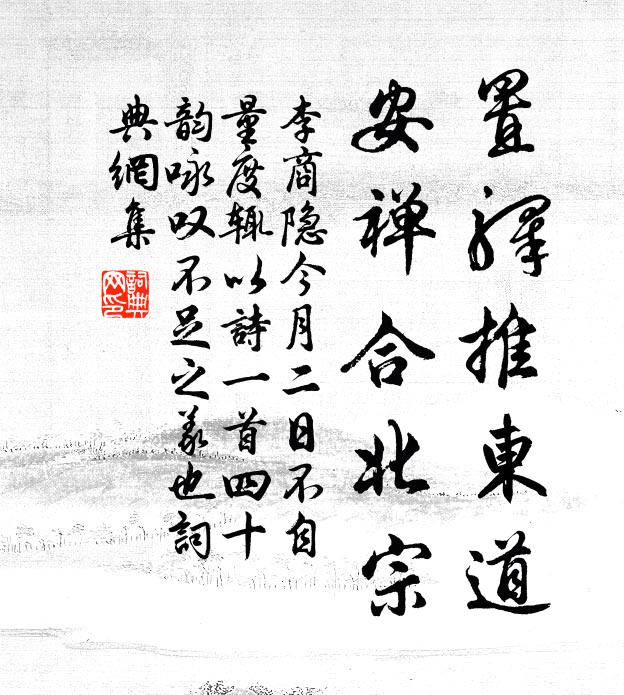 置驛推東道
安禅合北宗
李商隐今月二日不自
量度輒以詩一首四十
韵咏叹不足之義也詞
典網集
詞典網印